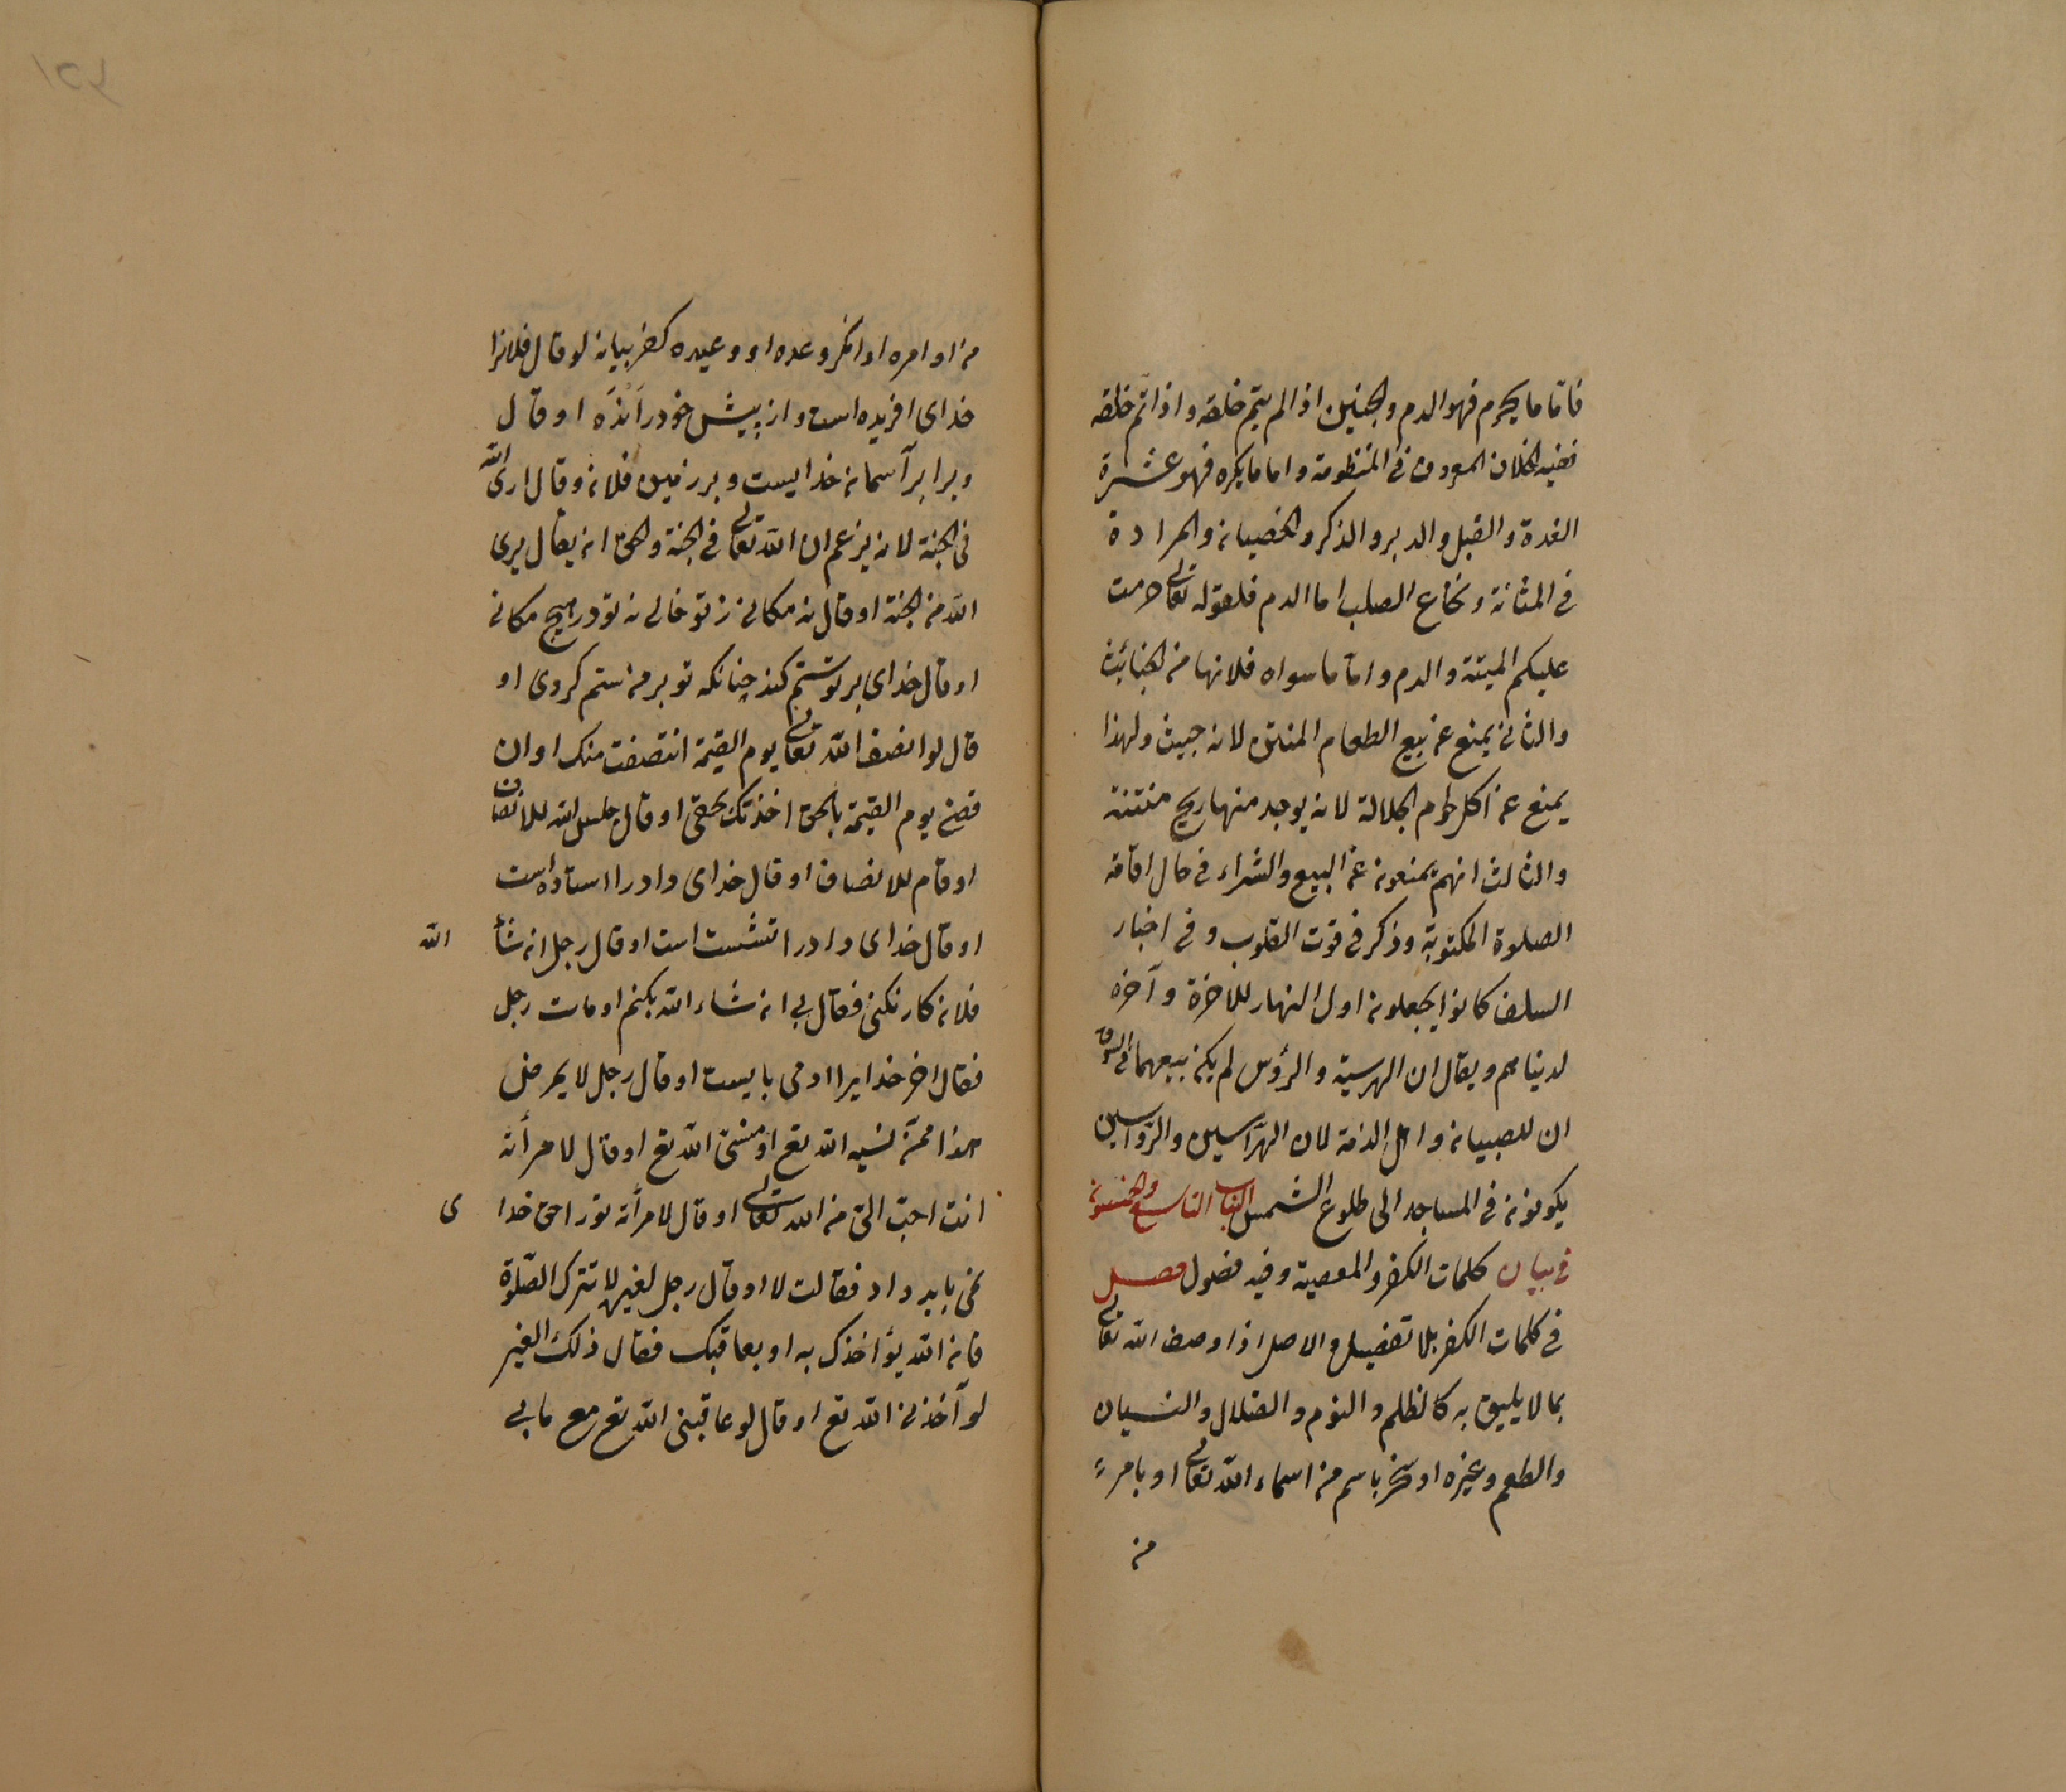 فاما ما يحرم فهو الدم والجنين اذا لم يتم خلقه واذا تم خلقه
ففيه الخلاف المعروف في المنظومة واما ما يكره فهو عشرة
الغدة والقبل والدبر والذكر والخصيان والمرارة
في المثانة ونخاع الصلب اما الدم فلقوله تعالى حرمت
عليكم الميتة والدم واما ما سواه فلانها من الخبائث
والثاني يمنع عن بيع الطعام المنتن لانه خبيث ولهذا
يمنع عن اكل لحوم الجلالة لانه يوجد منها ريح منتنة
والثالث انهم يمنعون عن البيع والشراء في حال اقامة
الصلوة المكتوبة وذكر في قوت القلوب وفي اخبار
السلف كانوا يجعلون اول النهار للاخرة وآخره
لدنياهم ويقال ان الهريسة والرؤس لم يكن يبيعهما في السوق
ان للصبيان واهل الذمة لان الهراسين والرواسين
يكونون في المساجد الى طلوع الشمس الباب التاسع والخمسون
في بيان كلمات الكفر والمعصية وفيه فصول فصل
في كلمات الكفر بلا تفصيل والاصل اذا وصف الله تعالى
بما لا يليق به كالظلم والنوم والضلال والنسيان
والطعم وغيره او سخر باسم من اسماء الله تعالى او بامر
من
من اوامره او انكر وعده او وعيده كفر بيانه لو قال فلانرا
خداى افريده است واز پيش خود رانده او قال
وبرابر آسمان خدايست وبر زمين فلان وقال ارى الله
في الجنة لانه يزعم ان الله تعالى في الجنة والحق ان يقال يرى
الله من الجنة او قال نه مكانى ز تو خالى نه تو در هيچ مكانى
او قال خداى بر تو ستم كند چنانكه تو بر من ستم كردى او
قال لو انصف الله تعالى يوم القيمة انتصفت منك او ان
قضى يوم القيمة بالحق اخذتك بحقى او قال جلس الله للانصاف
او قام للانصاف او قال خداى داد را استاده است
او قال خداى داد را نشست است او قال رجل ان شأ الله
فلان كار نكنى فقال بى ان شاء الله بكنم او مات رجل
فقال اخر خدايرا او مى بايست او قال رجل لا يمرض
هذا ممن نسيه الله تع او منسى الله تع او قال لامرأته
انت احب الى من الله تعالى او قال لامرأته تو را حق خداى
نمى بايد داد فقالت لا او قال رجل لغيره لا تترك الصلوة
فان الله يؤاخذك به او يعاقبك فقال ذلك الغير
لو آخذنى الله تع او قال لو عاقبنى الله تع مع ما بى